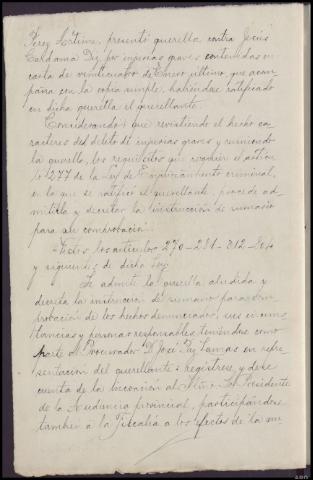 Perez Artime, presentó querella contra Jesús
Cardama Díz por injurias graves contenidas en
carta de veinticuatro de Enero último, que acom
paña con la copia simple, habiéndose ratificado
en dicha querella el querellante.
Considerando: que revistiendo el hecho ca
racteres del delito de injurias graves y reuniendo
la querella, los requisitos que requiere el artícu
lo 277 de la Ley de Enjuiciamiento criminal,
en la que se ratificó el querellante, procede ad
mitirla y decretar la instrucción de sumario
para su comprobación.
Vistos los artículos 270-281-312
y siguientes de dicha Ley.
Se admite la querella aludida y
decreta la instrucción de sumario para com
probación de los hechos denunciados, sus circuns
tancias y personas responsables, teniéndose como
parte al Procurador D. José Paz Lamas en repre
sentación del querellante: regístrese, y dese
cuenta de la incoación al Iltmo. Sr. Presidente
de la Audiencia provincial, participándose
también a la Fiscalía a los efectos de la in